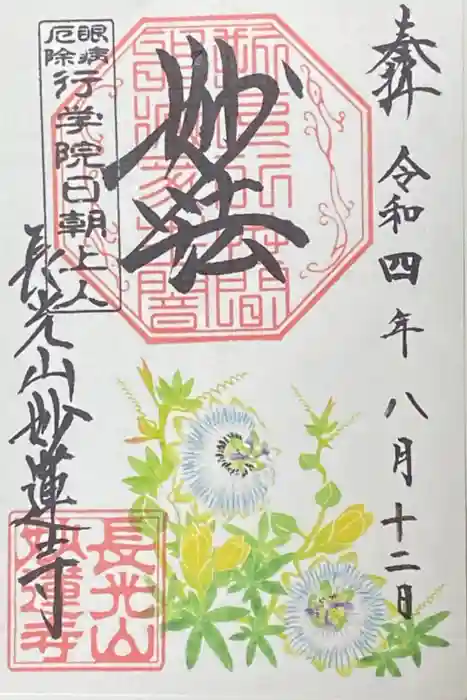 奉拝
令和四年 八月十二日
妙法
眼病
厄除
行学院日朝上人
長光山妙蓮寺
長光山
妙蓮寺